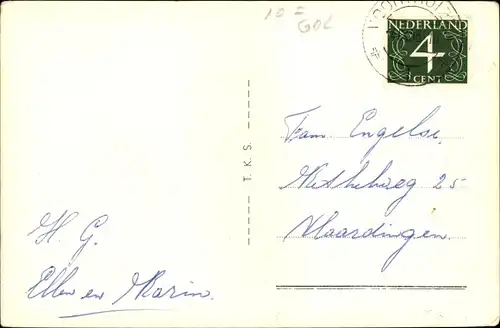 10 =
GOL
NEDERLAND
4
CENT
T. K. S.
Fam Engelse.
25
Vlaardingen.
H. G.
Ellen en Karin.